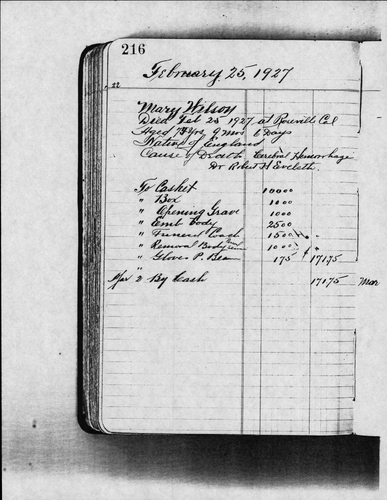 216
February 25, 1927
22
Mary Wilson
Died Feb 25 1927 at Roseville Cal
Aged 73 yrs 9 mos 6 Days
Native of England
Cause of Death Cerebral Hemorrhage
Dr Robert H Eveleth
To Casket 100 00
" Box 10 00
" Opening Grave 10 00
" Emb body 25 00
" Funeral Coach 15 00
" Removal Body 10 00
" Gloves P. Bear 1 75 171 75
"
Mar 2 By Cash 171 75 Mar